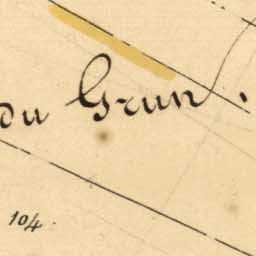 du Grun.
104.